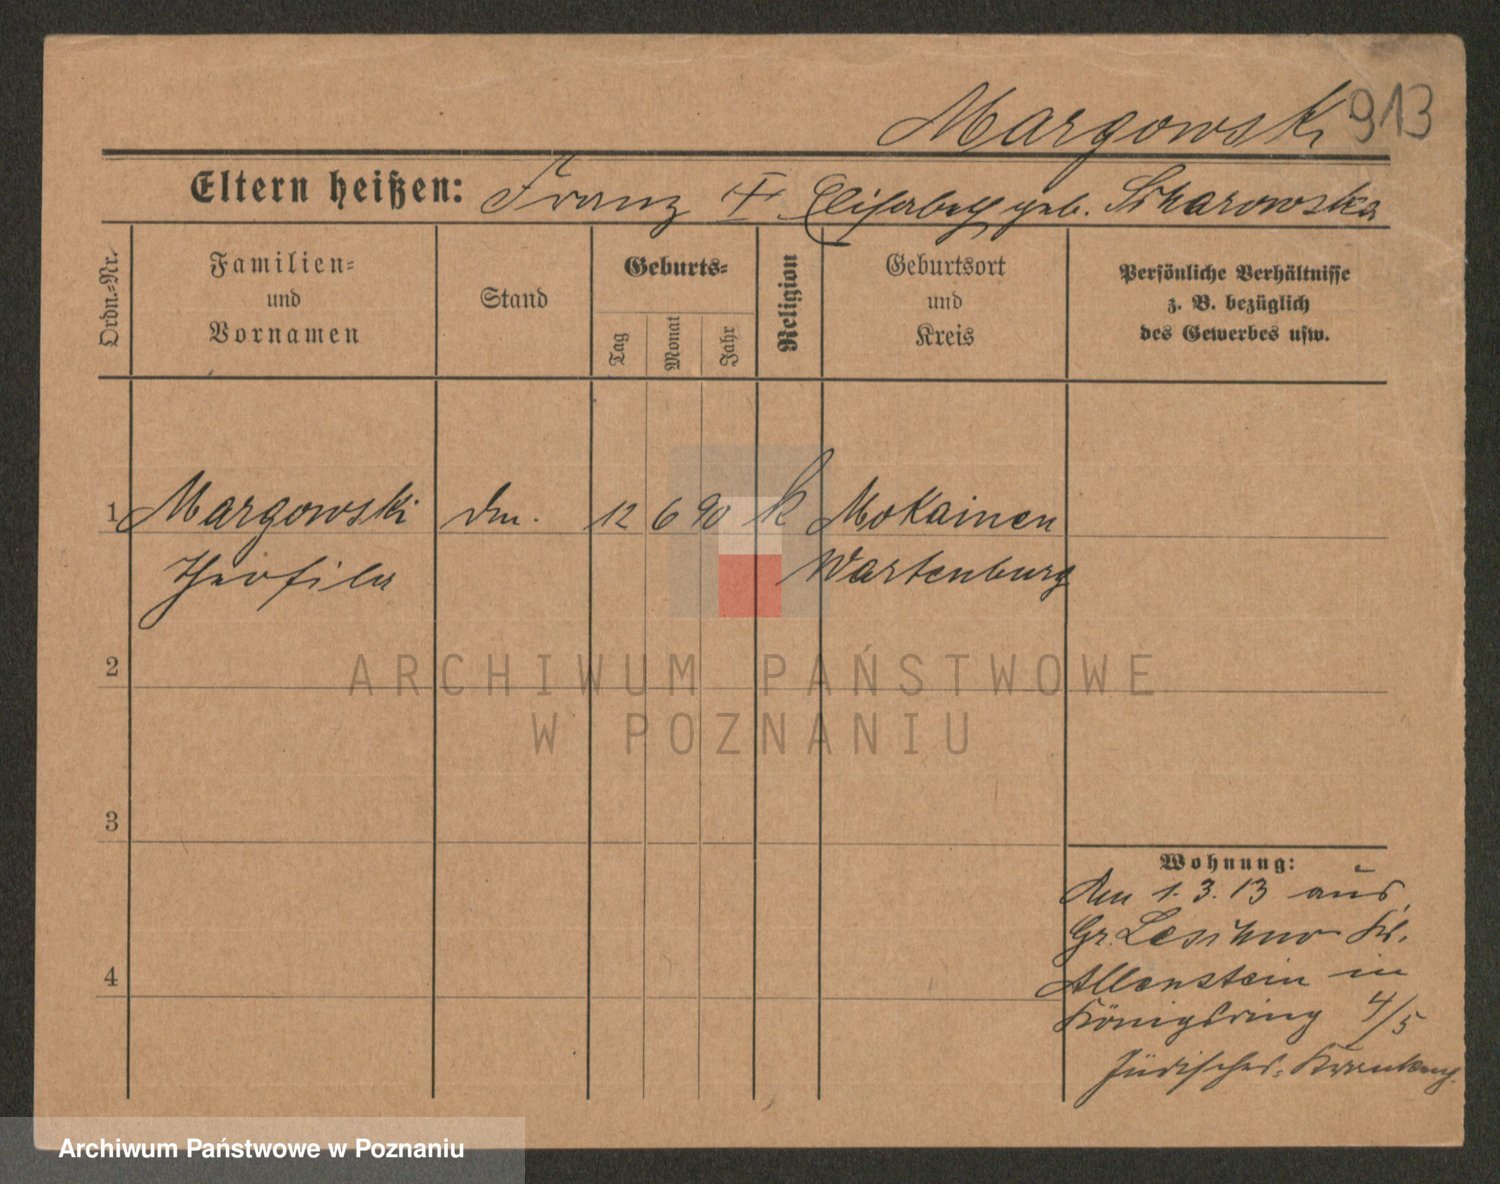 Margowski 913
Eltern heißen: Franz Elisabeth geb.
Ordn.-Nr.
Familien-
und
Vornamen
Stand
Geburts-
Tag
Monat
Jahr
Religion
Geburtsort
und
Kreis
Persönliche Verhältnisse
z. B. bezüglich
des Gewerbes usw.
1 Margowski 12 6 90 k Mokainen
Theofila Wartenburg
ARCHIWUM PAŃSTWOWE
W POZNANIU
2
3
4
Wohnung:
Am 1.3.13 aus
Gr. Kr.
Allenstein in
Königsring 4/5
Jüdisches
Archiwum Państwowe w Poznaniu